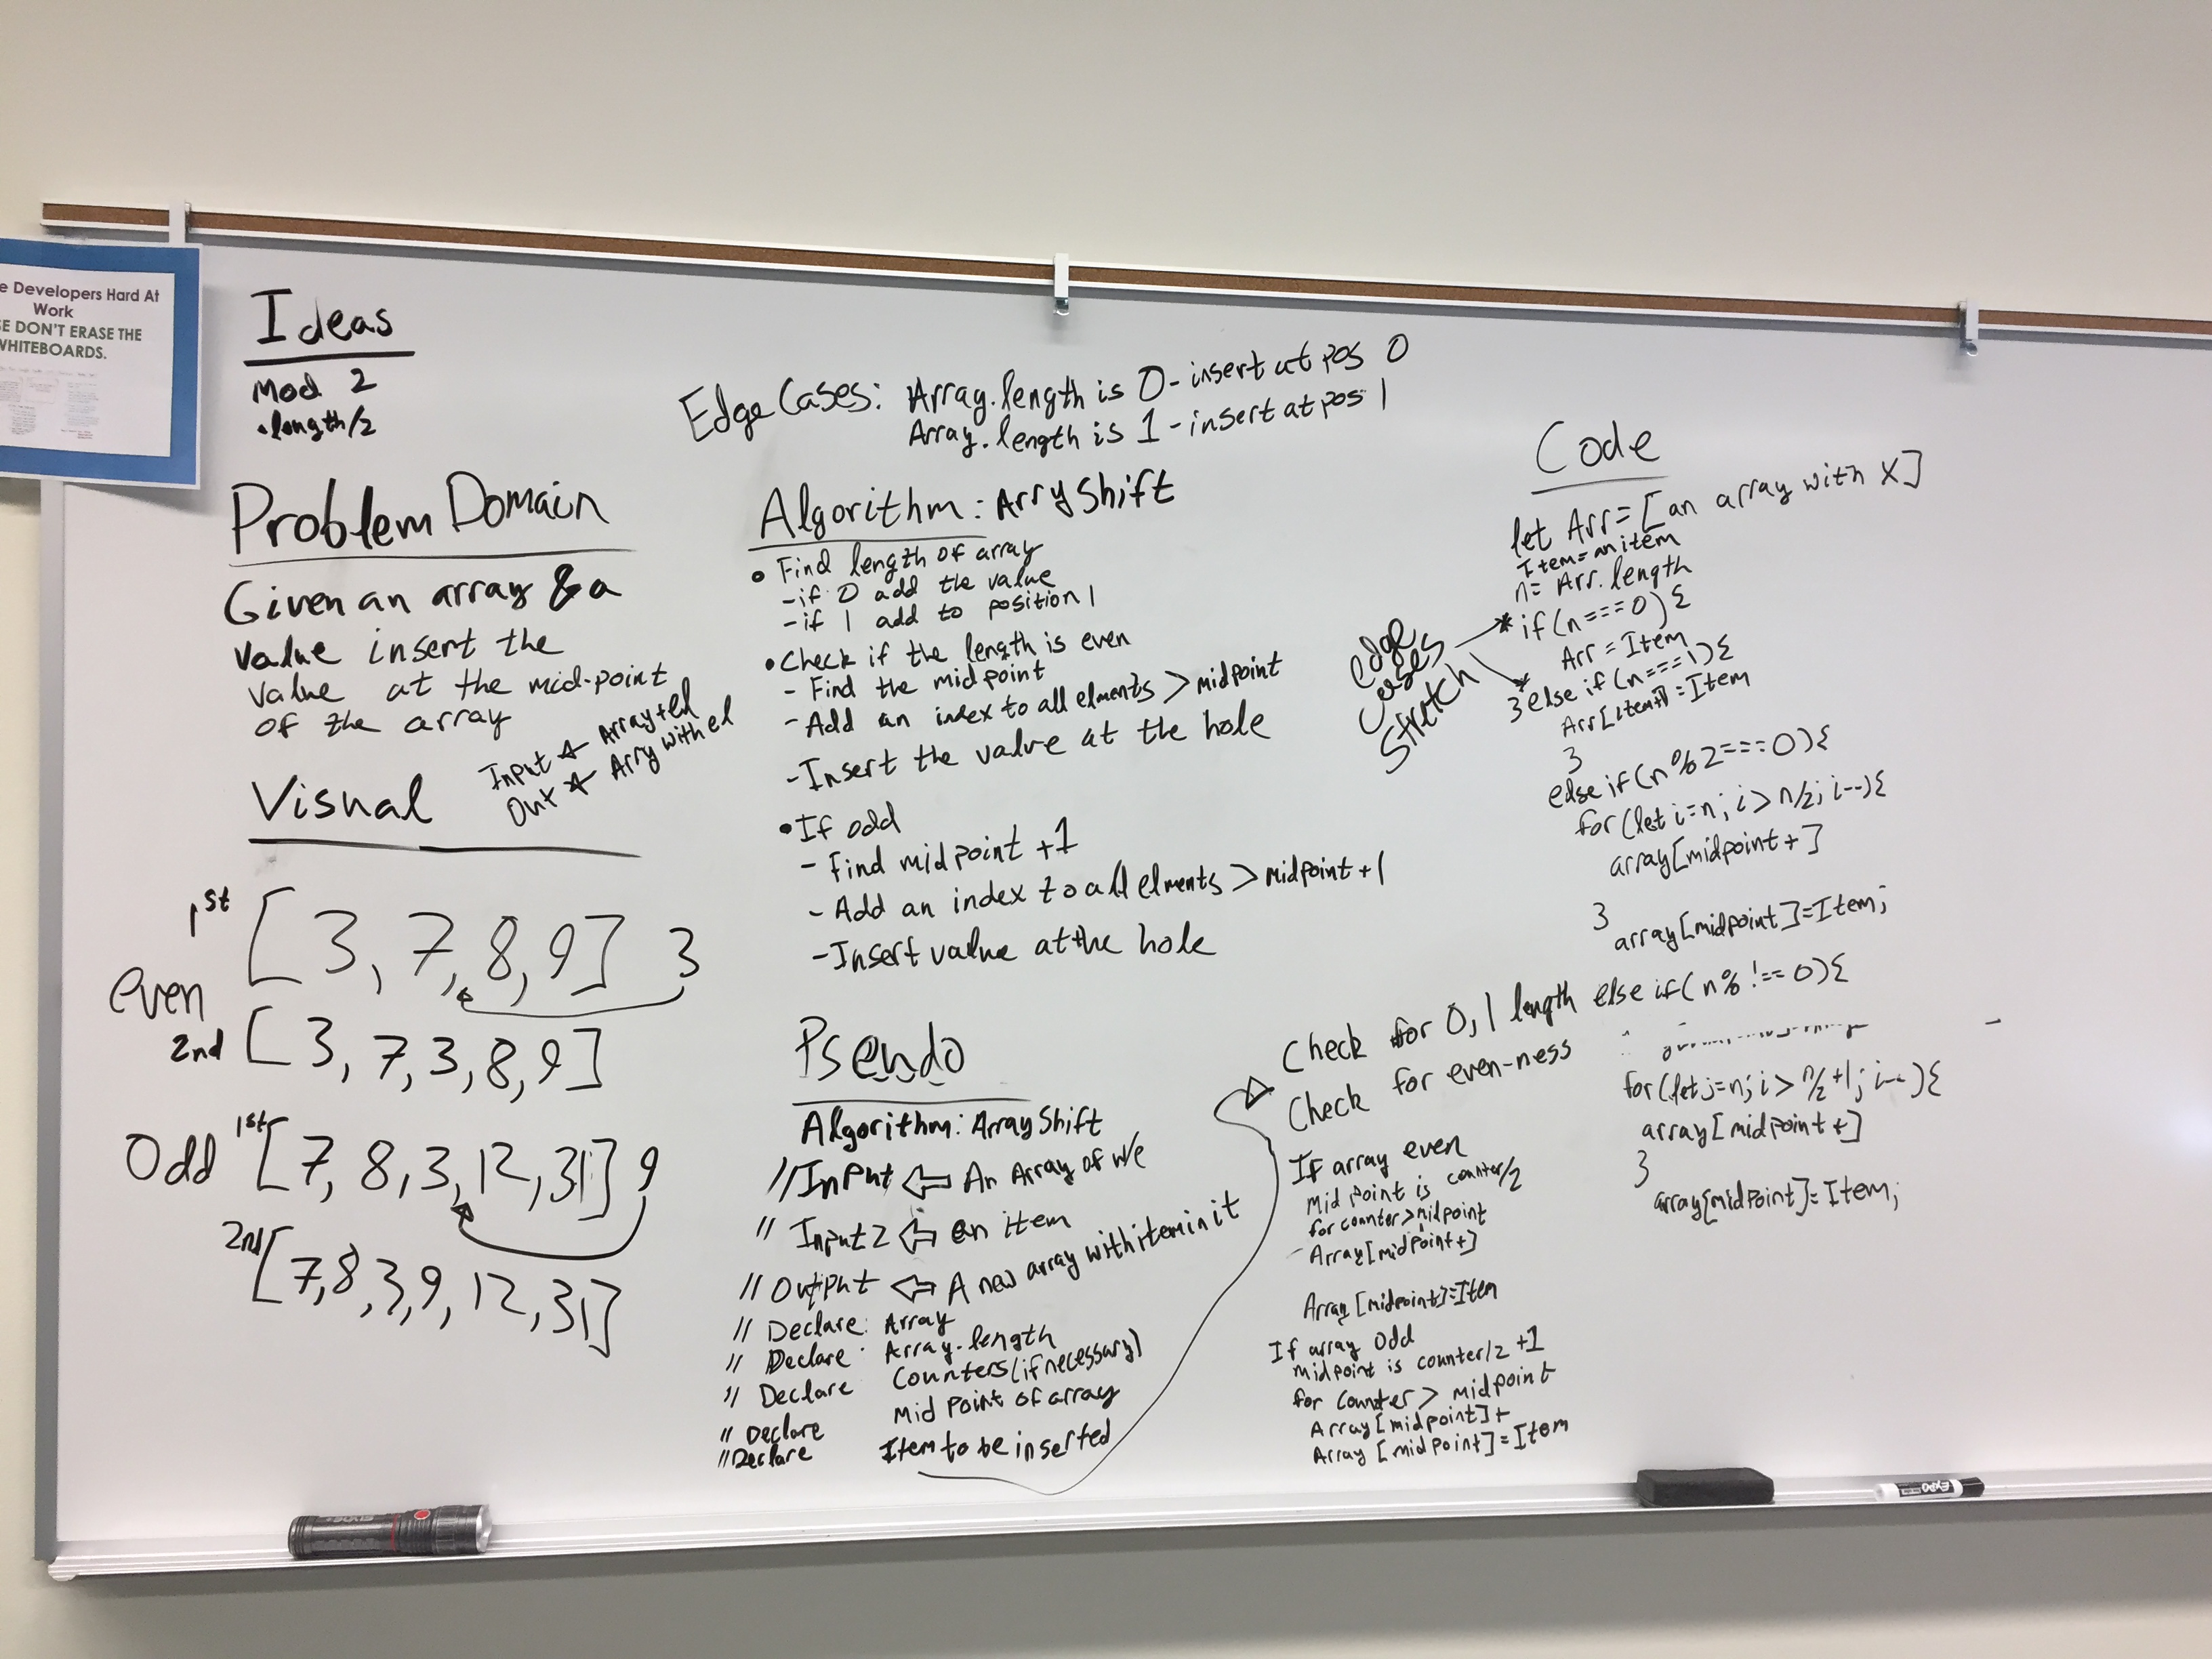 e Developers Hard At
Work
SE DON'T ERASE THE
WHITEBOARDS.
Ideas
Mod 2
.length/2
Problem Domain
Given an array & a
value insert the
value at the mid-point
of the array
Input Array + el
Out Arry with el
Visual
1st [3, 7, 8, 9] 3
even
2nd [3, 7, 3, 8, 9]
Odd 1st [7, 8, 3, 12, 31] 9
2nd [7, 8, 3, 9, 12, 31]
Edge Cases: Array.length is 0 - insert at pos 0
Array.length is 1 - insert at pos 1
Algorithm: ArryShift
• Find length of array
- if 0 add the value
- if 1 add to position 1
• Check if the length is even
- Find the midpoint
- Add an index to all elments > midpoint
- Insert the value at the hole
• If odd
- Find midpoint +1
- Add an index to all elments > midpoint +1
- Insert value at the hole
Pseudo
Algorithm: ArrayShift
// Input ⇐ An Array of w/e
// Input 2 ⇐ an item
// Output ⇐ A new array with item in it
// Declare: Array
// Declare: Array.length
// Declare Counters (if necessary)
// Declare Mid Point of array
// Declare Item to be inserted
Check for 0, 1 length
Check for even-ness
If array even
Mid point is counter/2
for counter > midpoint
- Array[midpoint+]
Array[midpoint]=Item
If array odd
midpoint is counter/2 +1
for counter > midpoint
Array[midpoint]+
Array[midpoint]=Item
Code
let Arr = [an array with x]
Item = an item
n = Arr.length
edge
cases
stretch
* if (n===0) {
Arr = Item
* } else if (n===1) {
=Item
}
else if (n%2===0) {
for (let i=n; i > n/2; i--) {
array[midpoint+]
}
array[midpoint]=Item;
else if (n% !== 0) {
for (let j=n; i > n/2 +1; i--) {
array[midpoint+]
}
array[midpoint]=Item;
EXPO